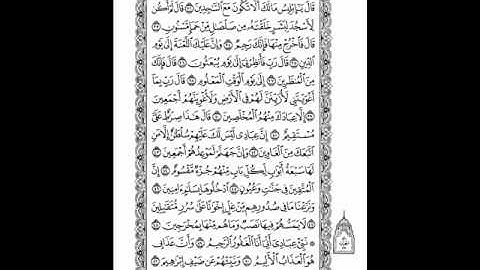 قَالَ يَٰٓإِبْلِيسُ مَا لَكَ أَلَّا تَكُونَ مَعَ ٱلسَّٰجِدِينَ ٣٢ قَالَ لَمْ أَكُن
لِّأَسْجُدَ لِبَشَرٍ خَلَقْتَهُۥ مِن صَلْصَٰلٍ مِّنْ حَمَإٍ مَّسْنُونٍ ٣٣
قَالَ فَٱخْرُجْ مِنْهَا فَإِنَّكَ رَجِيمٌ ٣٤ وَإِنَّ عَلَيْكَ ٱللَّعْنَةَ إِلَىٰ يَوْمِ
ٱلدِّينِ ٣٥ قَالَ رَبِّ فَأَنظِرْنِىٓ إِلَىٰ يَوْمِ يُبْعَثُونَ ٣٦ قَالَ فَإِنَّكَ
مِنَ ٱلْمُنظَرِينَ ٣٧ إِلَىٰ يَوْمِ ٱلْوَقْتِ ٱلْمَعْلُومِ ٣٨ قَالَ رَبِّ بِمَآ
أَغْوَيْتَنِى لَأُزَيِّنَنَّ لَهُمْ فِى ٱلْأَرْضِ وَلَأُغْوِيَنَّهُمْ أَجْمَعِينَ
٣٩ إِلَّا عِبَادَكَ مِنْهُمُ ٱلْمُخْلَصِينَ ٤٠ قَالَ هَٰذَا صِرَٰطٌ عَلَىَّ
مُسْتَقِيمٌ ٤١ إِنَّ عِبَادِى لَيْسَ لَكَ عَلَيْهِمْ سُلْطَٰنٌ إِلَّا مَنِ
ٱتَّبَعَكَ مِنَ ٱلْغَاوِينَ ٤٢ وَإِنَّ جَهَنَّمَ لَمَوْعِدُهُمْ أَجْمَعِينَ ٤٣
لَهَا سَبْعَةُ أَبْوَٰبٍ لِّكُلِّ بَابٍ مِّنْهُمْ جُزْءٌ مَّقْسُومٌ ٤٤ إِنَّ
ٱلْمُتَّقِينَ فِى جَنَّٰتٍ وَعُيُونٍ ٤٥ ٱدْخُلُوهَا بِسَلَٰمٍ ءَامِنِينَ ٤٦
وَنَزَعْنَا مَا فِى صُدُورِهِم مِّنْ غِلٍّ إِخْوَٰنًا عَلَىٰ سُرُرٍ مُّتَقَٰبِلِينَ
٤٧ لَا يَمَسُّهُمْ فِيهَا نَصَبٌ وَمَا هُم مِّنْهَا بِمُخْرَجِينَ ٤٨
۞ نَبِّئْ عِبَادِىٓ أَنِّىٓ أَنَا ٱلْغَفُورُ ٱلرَّحِيمُ ٤٩ وَأَنَّ عَذَابِى
هُوَ ٱلْعَذَابُ ٱلْأَلِيمُ ٥٠ وَنَبِّئْهُمْ عَن ضَيْفِ إِبْرَٰهِيمَ ٥١